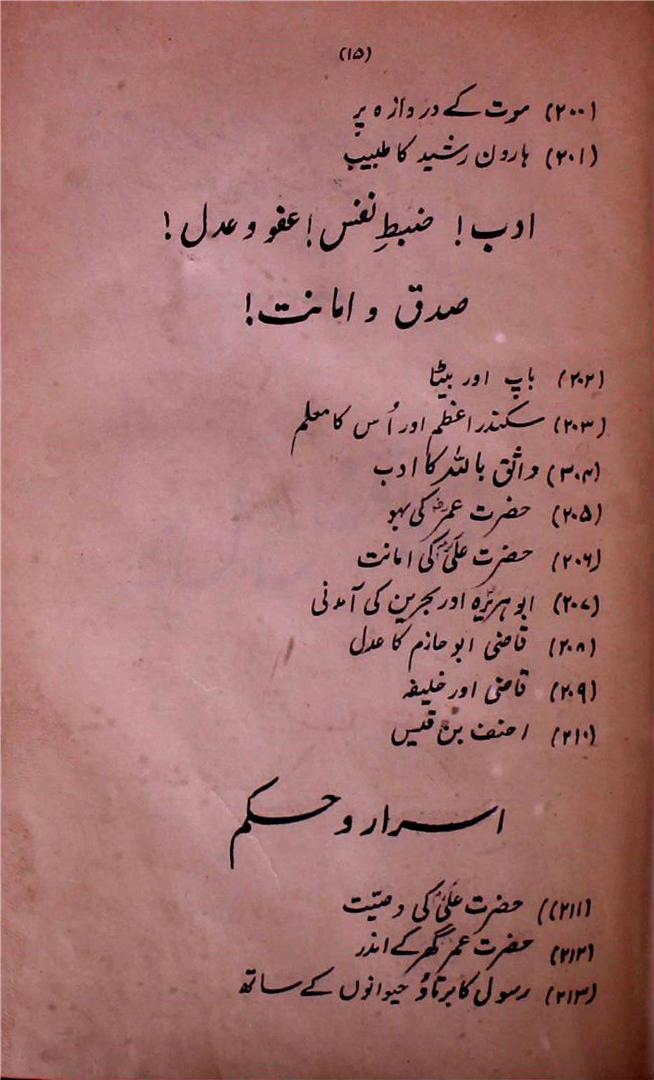 (۱۵)
(۲۰۰) موت کے دروازہ پر
(۲۰۱) ہارون رشید کا طبیب
ادب! ضبطِ نفس! عفو و عدل!
صدق و امانت!
(۲۰۲) باپ اور بیٹا
(۲۰۳) سکندر اعظم اور اُس کا معلم
(۳۰۴) واثق باللہ کا ادب
(۲۰۵) حضرت عمرؓ کی بہو
(۲۰۶) حضرت علیؓ کی امانت
(۲۰۷) ابو ہریرہ اور بحرین کی آمدنی
(۲۰۸) قاضی ابو حازم کا عدل
(۲۰۹) قاضی اور خلیفہ
(۲۱۰) احنف بن قیس
اسرار و حکم
(۲۱۱)) حضرت علیؓ کی وصیّت
(۲۱۲) حضرت عمرؓ گھر کے اندر
(۲۱۳) رسول کا برتاؤ حیوانوں کے ساتھ